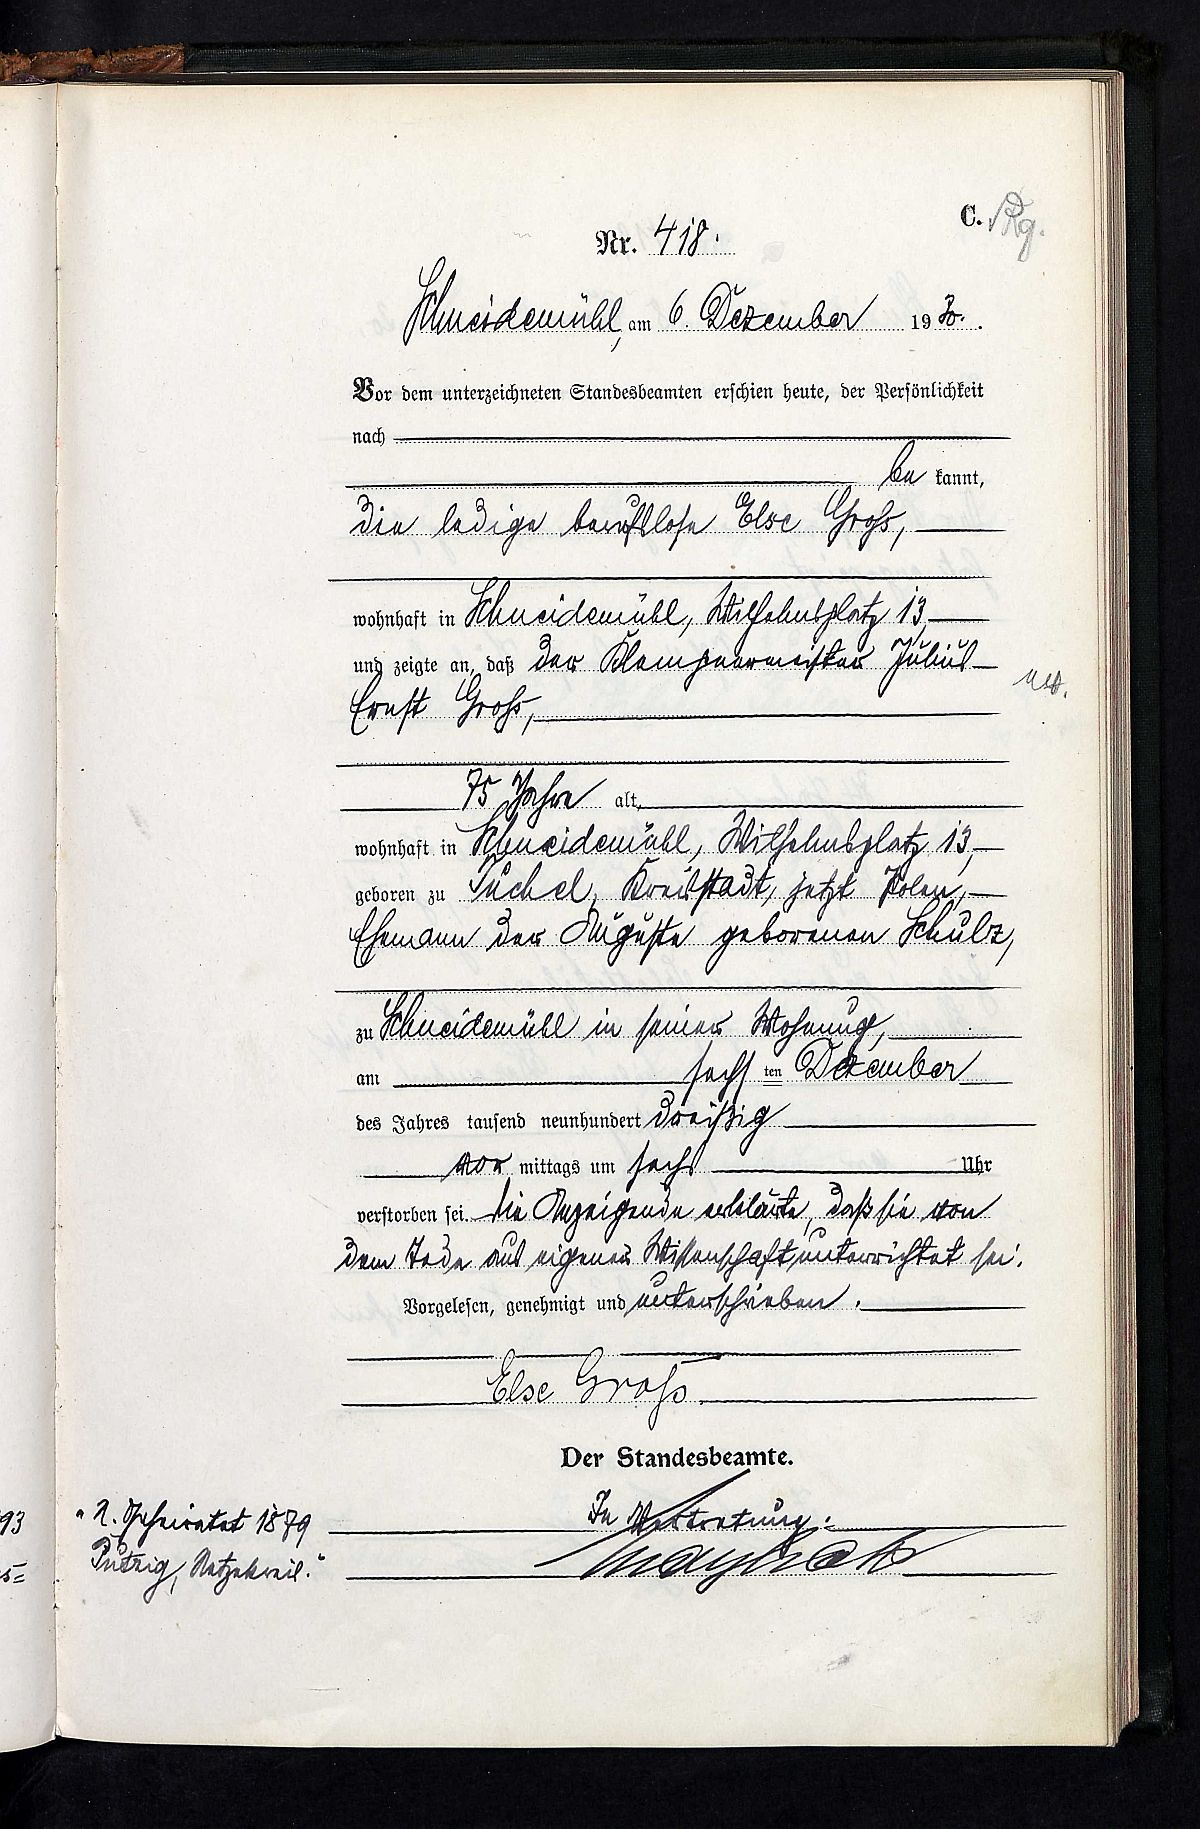 C.
Nr. 418.
Schneidemühl, am 6. Dezember 1930.
Vor dem unterzeichneten Standesbeamten erschien heute, der Persönlichkeit
nach
be kannt,
die ledige berufslose Else Groß,
wohnhaft in Schneidemühl, Wilhelmsplatz 13,
und zeigte an, daß der Klempnermeister Julius
Ernst Groß,
75 Jahre alt,
wohnhaft in Schneidemühl, Wilhelmsplatz 13,
geboren zu Tuchel, Kreisstadt, jetzt Polen,
Ehemann der Auguste geborenen Schulz,
zu Schneidemühl in seiner Wohnung,
am sechsten Dezember
des Jahres tausend neunhundert dreißig
vor mittags um sechs Uhr
verstorben sei. Die Anzeigende erklärte, daß sie von
dem Tode aus eigener Wissenschaft unterrichtet sei.
Vorgelesen, genehmigt und unterschrieben.
Else Groß.
Der Standesbeamte.
In Vertretung:
93
"2. Geheiratet 1879
Putzig, Netzekreis."